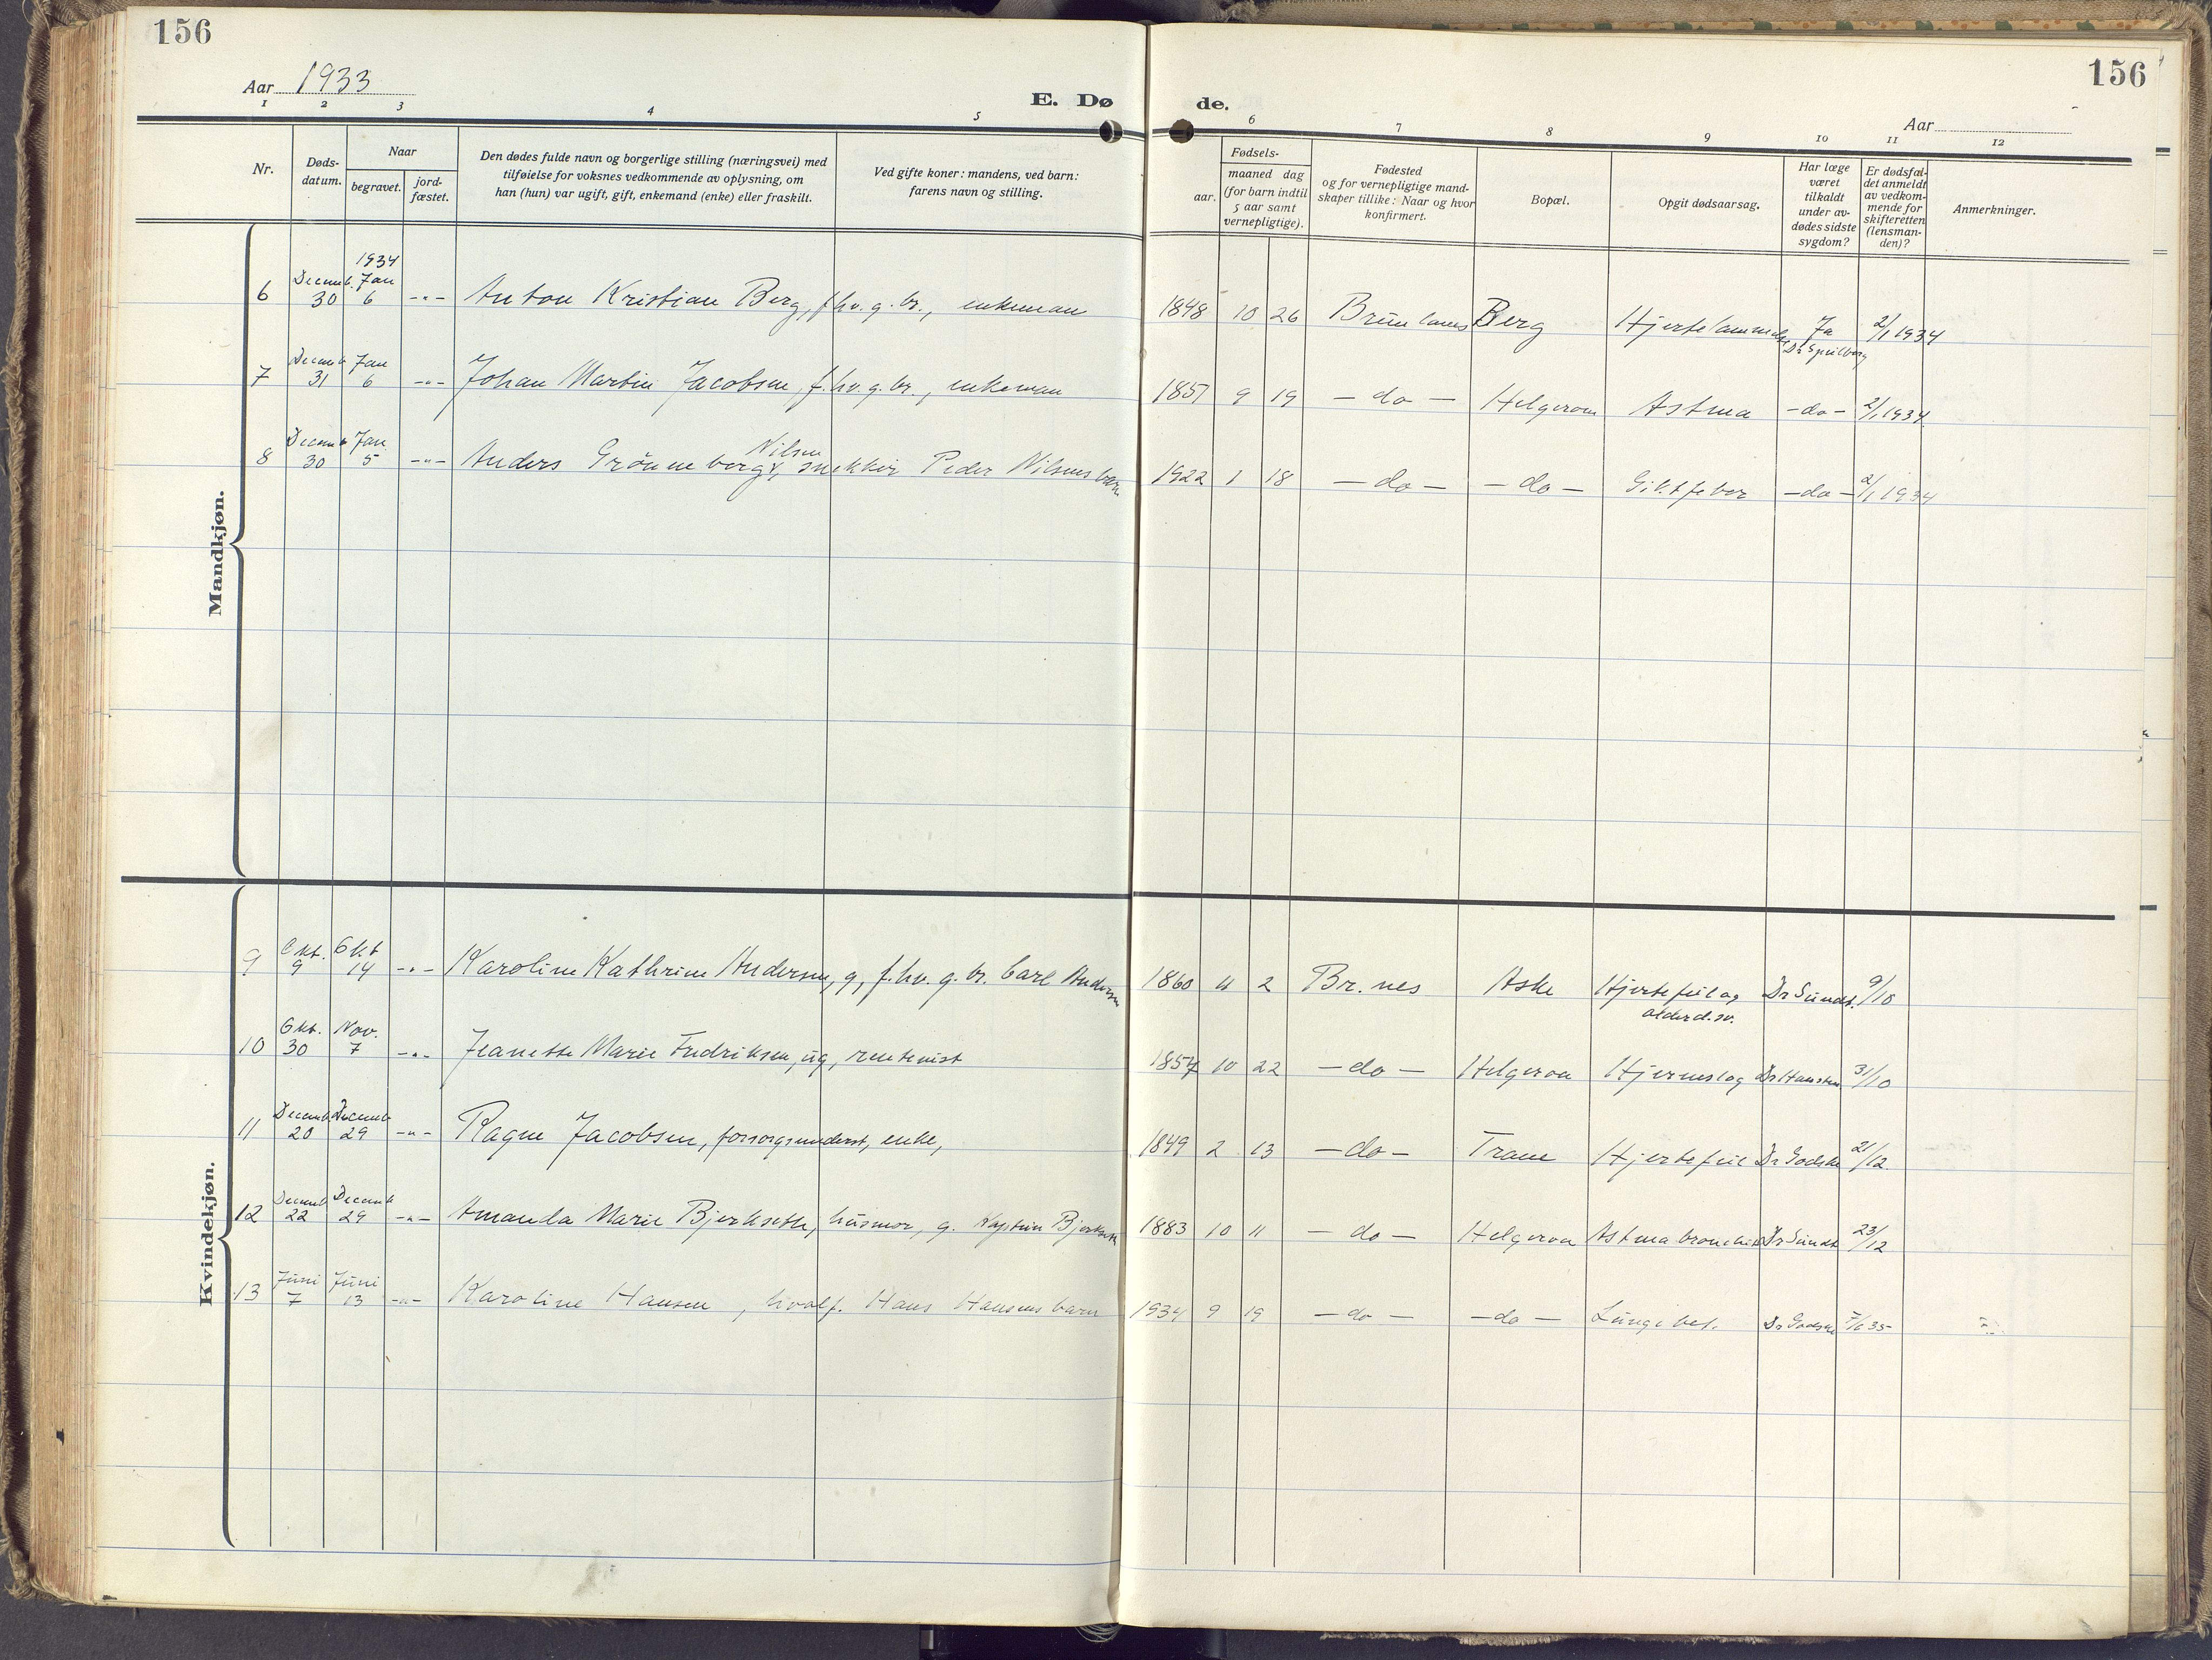 156
156
Aar 1933
E. Dø de.
Aar
1 2 3 4 5 6 7 8 9 10 11 12
Nr.
Døds-
datum.
Naar
begravet.
jord-
fæstet.
Den dødes fulde navn og borgerlige stilling (næringsvei) med
tilføielse for voksnes vedkommende av oplysning, om
han (hun) var ugift, gift, enkemand (enke) eller fraskilt.
Ved gifte koner: mandens, ved barn:
farens navn og stilling.
Fødsels-
aar.
maaned dag
(for barn indtil
5 aar samt
vernepligtige).
Fødested
og for vernepligtige mand-
skaper tillike: Naar og hvor
konfirmert.
Bopæl.
Opgit dødsaarsag.
Har læge
været
tilkaldt
under av-
dødes sidste
sygdom?
Er dødsfal-
det anmeldt
av vedkom-
mende for
skifteretten
(lensman-
den)?
Anmerkninger.
Mandkjøn.
1934
6 Decemb. 30 Jan 6 -"- Anton Kristian Berg, f.hv.g.br., enkeman 1848 10 26 Brunlanes Berg Hjertelammelse Ja 2/1 1934
Dr Speilberg
7 Decemb 31 Jan 6 -"- Johan Martin Jacobsen, f.hv.g.br., enkeman 1857 9 19 - do - Helgeroa Astma - do - 2/1 1934
Nilsen
8 Decemb 30 Jan 5 -"- Anders Grønneberg, snekker Peder Nilsens barn 1922 1 18 - do - - do - Giktfeber - do - 2/1 1934
Kvindekjøn.
9 Okt. 9 Okt 14 -"- Karoline Kathrine Andersen, g, f.hv.g.br. Carl Andersen 1860 11 2 Br.nes Aske Hjertefeil og Dr Sundt. 9/10
alderd.sv.
10 Okt. 30 Nov. 7 -"- Jeanette Marie Fredriksen, ug, rentenist 1857 10 22 - do - Helgeroa Hjerneslag Dr Hansten 31/10
11 Decemb 20 Decemb 29 -"- Ragne Jacobsen, forsorgsunderst, enke, 1849 2 13 - do - Trane Hjertefeil Dr Godske 21/12
12 Decemb 22 Decemb 29 -"- Amanda Marie Bjerkseth, husmor, g. Kaptein Bjerkseth 1883 10 11 - do - Helgeroa Astma bronchit Dr Sundt 23/12
13 Juni 7 Juni 13 -"- Karoline Hansen, hvalf. Hans Hansens barn 1934 9 19 - do - - do - Lungebet. Dr Godske 7/6 35